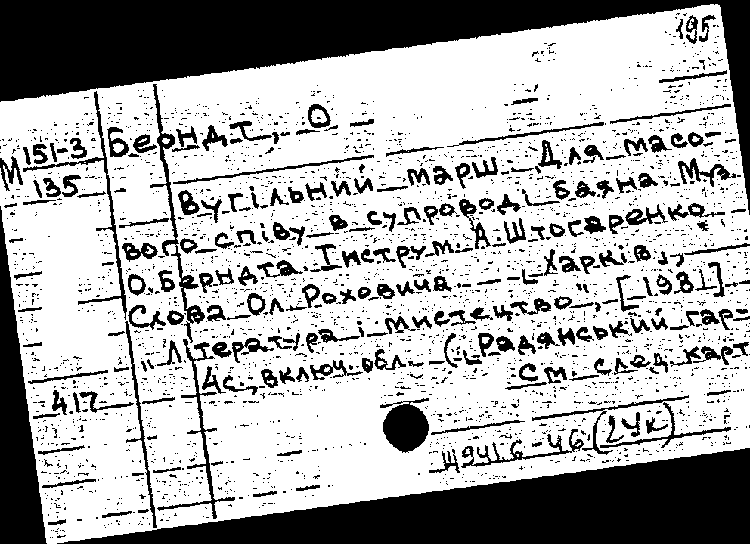 195
М 151-3
135
Берндт, О
Вугільний марш. Для масо-
вого співу в супроводі баяна. Муз.
О. Берндта. Інструм. А. Штогаренко
Слова Ол. Роховича. Харків,
„Література і мистецтво", [1931]
4с., включ. обл. („Радянський гар-
См. след. карт
417
Щ9416-46 (2Ук)